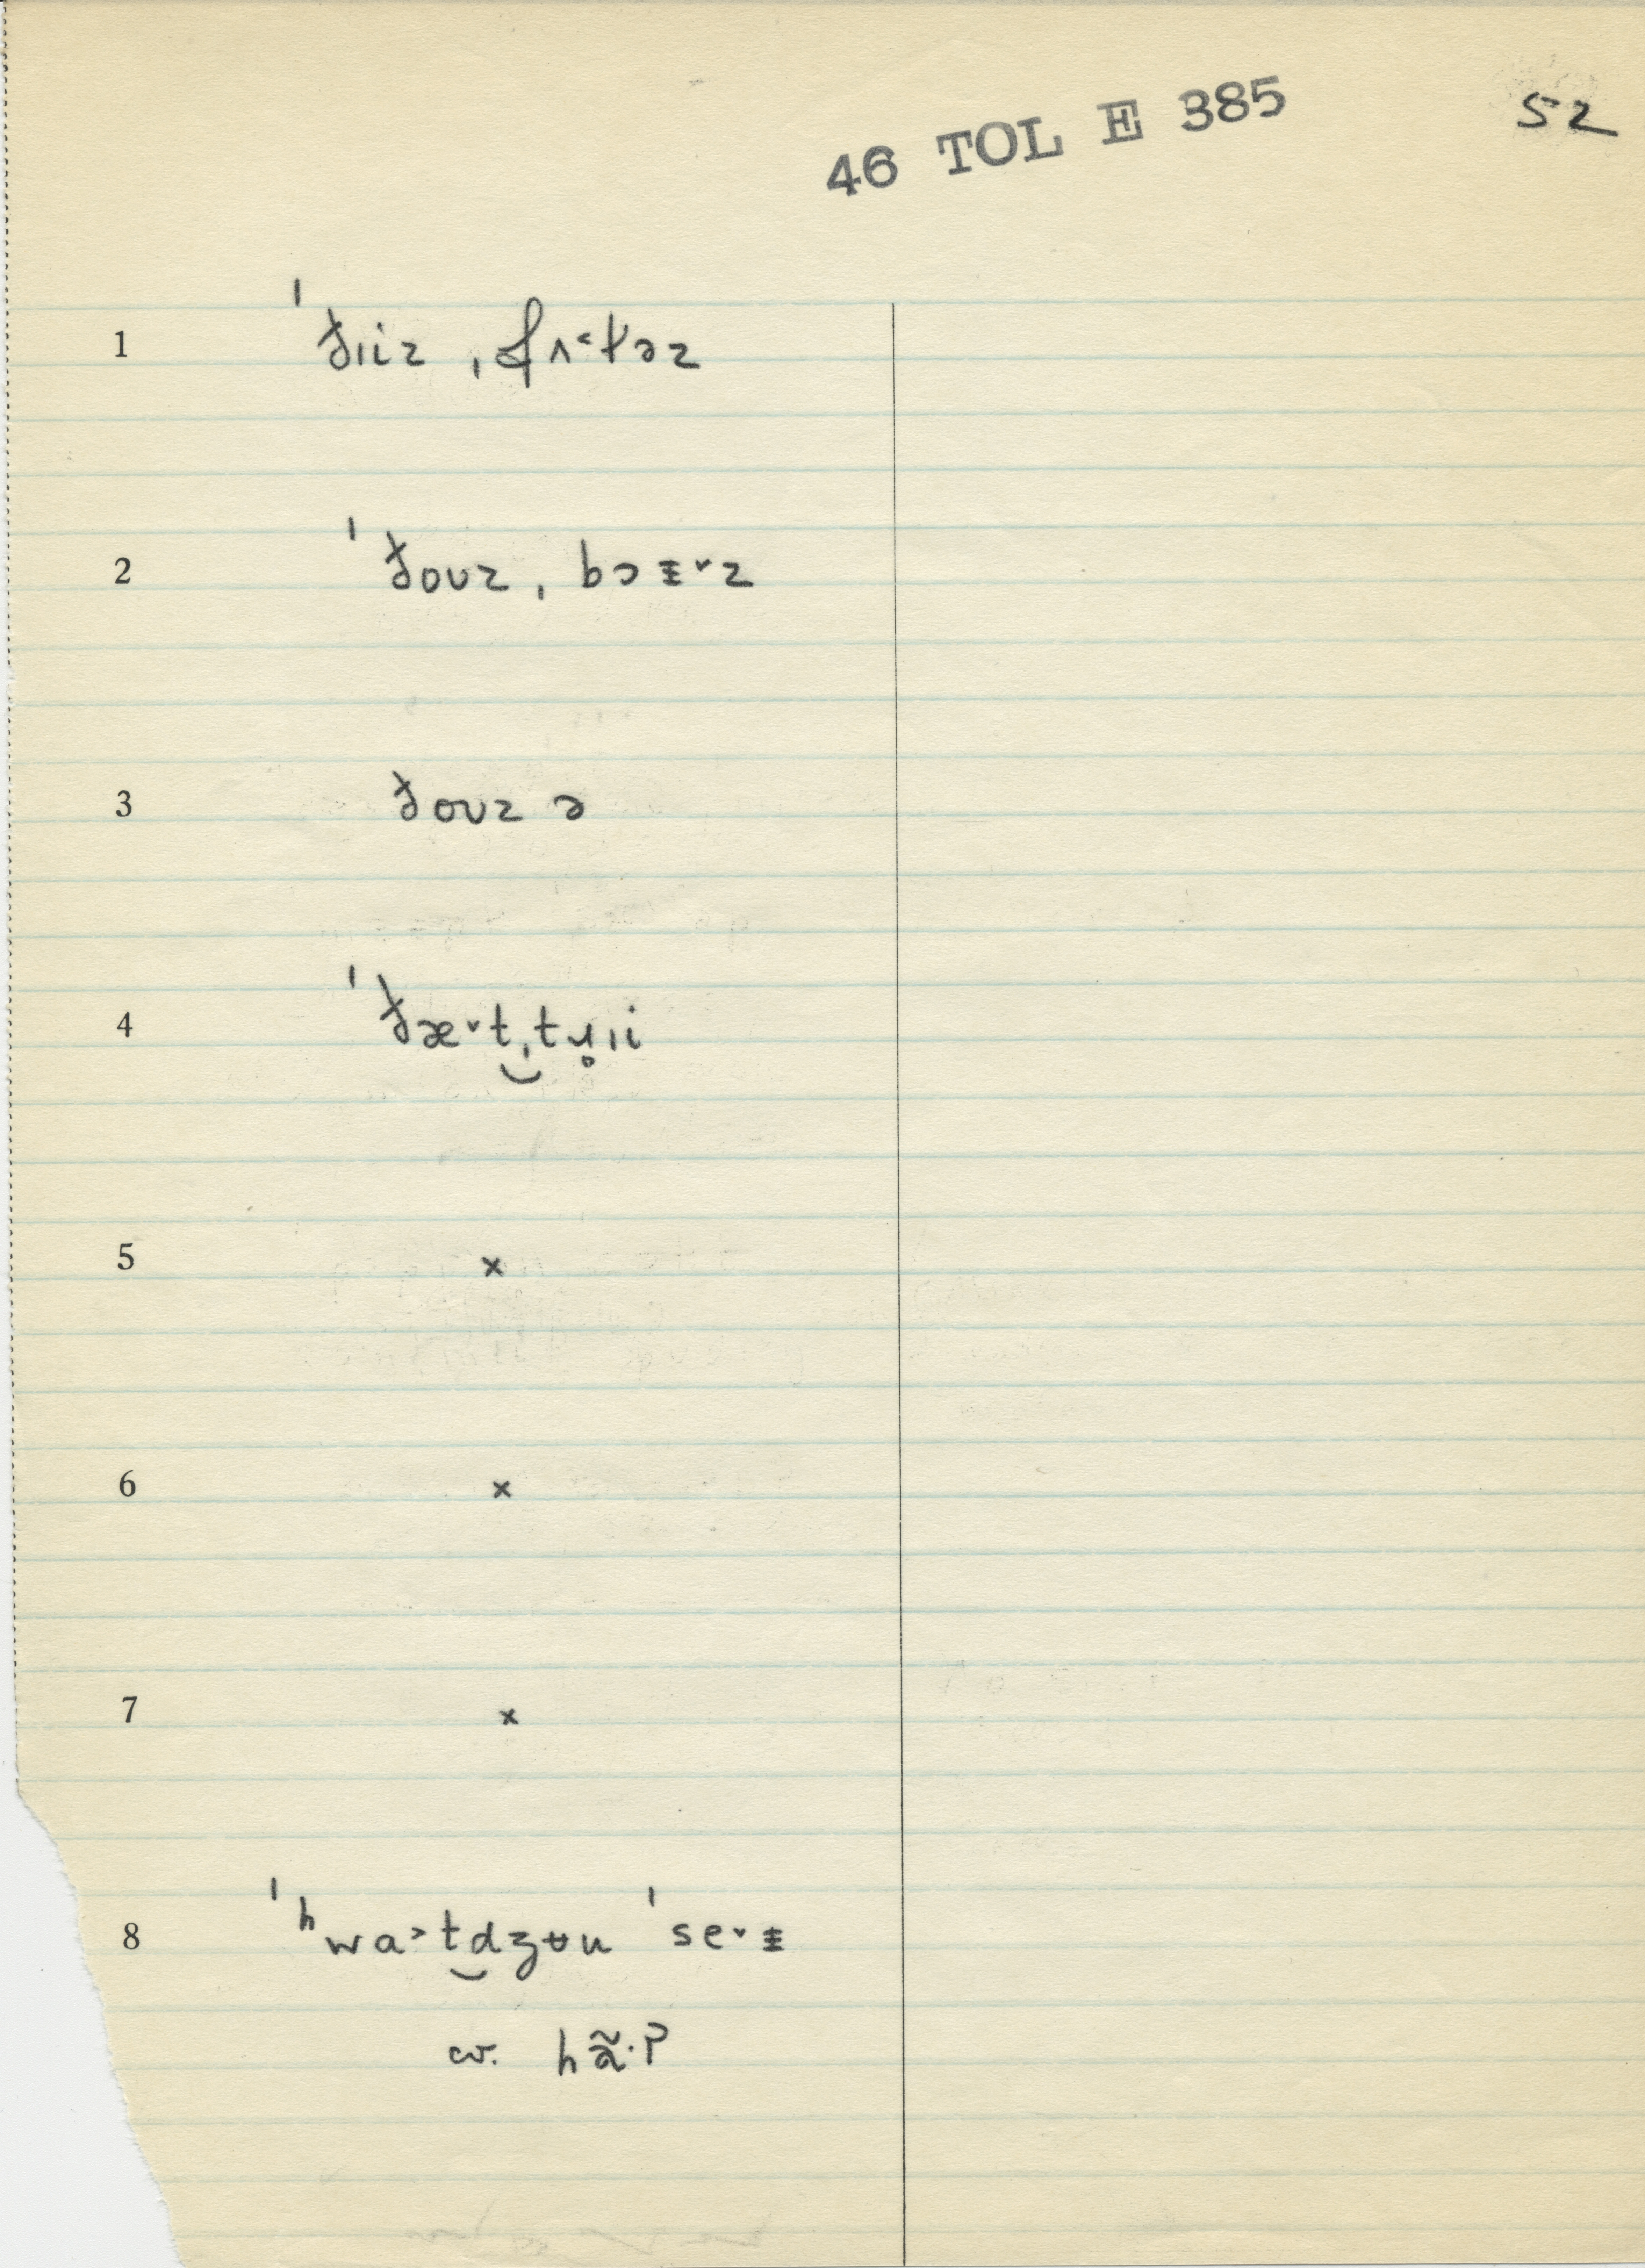 46 TOL E 385
52
1 ˈðɪiz ˌfʌ˂ɫəz
2 ˈðoʊz ˌbɔɪ˅z
3 ðoʊz ə
4 ˈðæ˅t ˌtɹ̥ɪi
5 x
6 x
7 x
8 ˈʰwa˃tdʒʉu ˈse˅ɪ
cv. hæ̃·ʔ